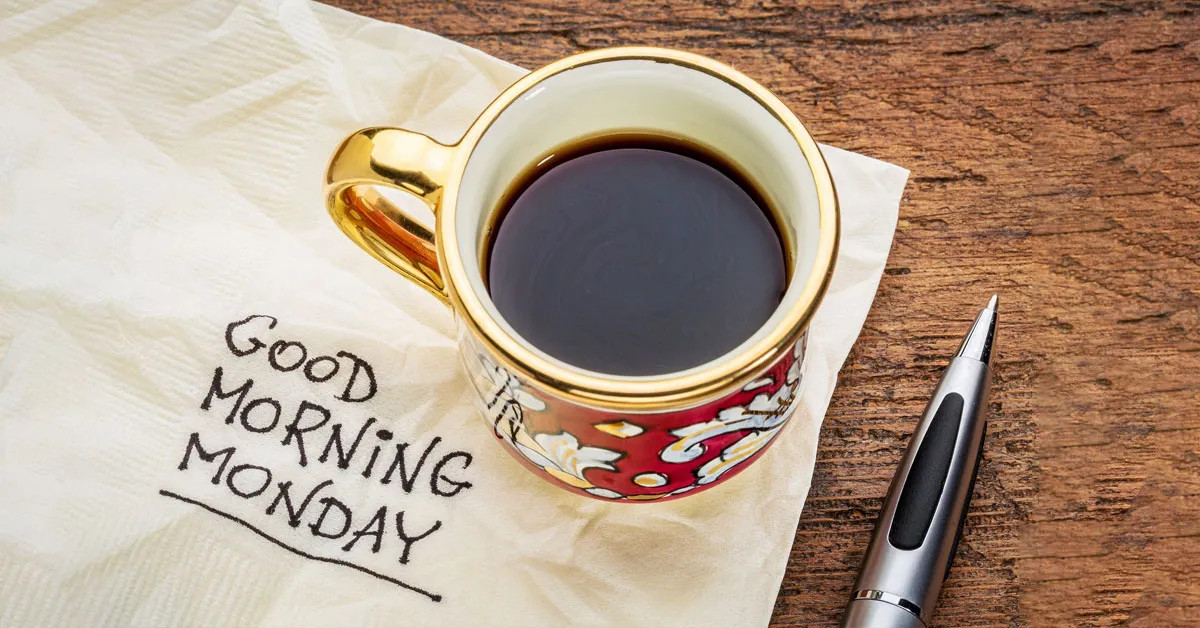 GOOD
MORNiNG
MONDAY